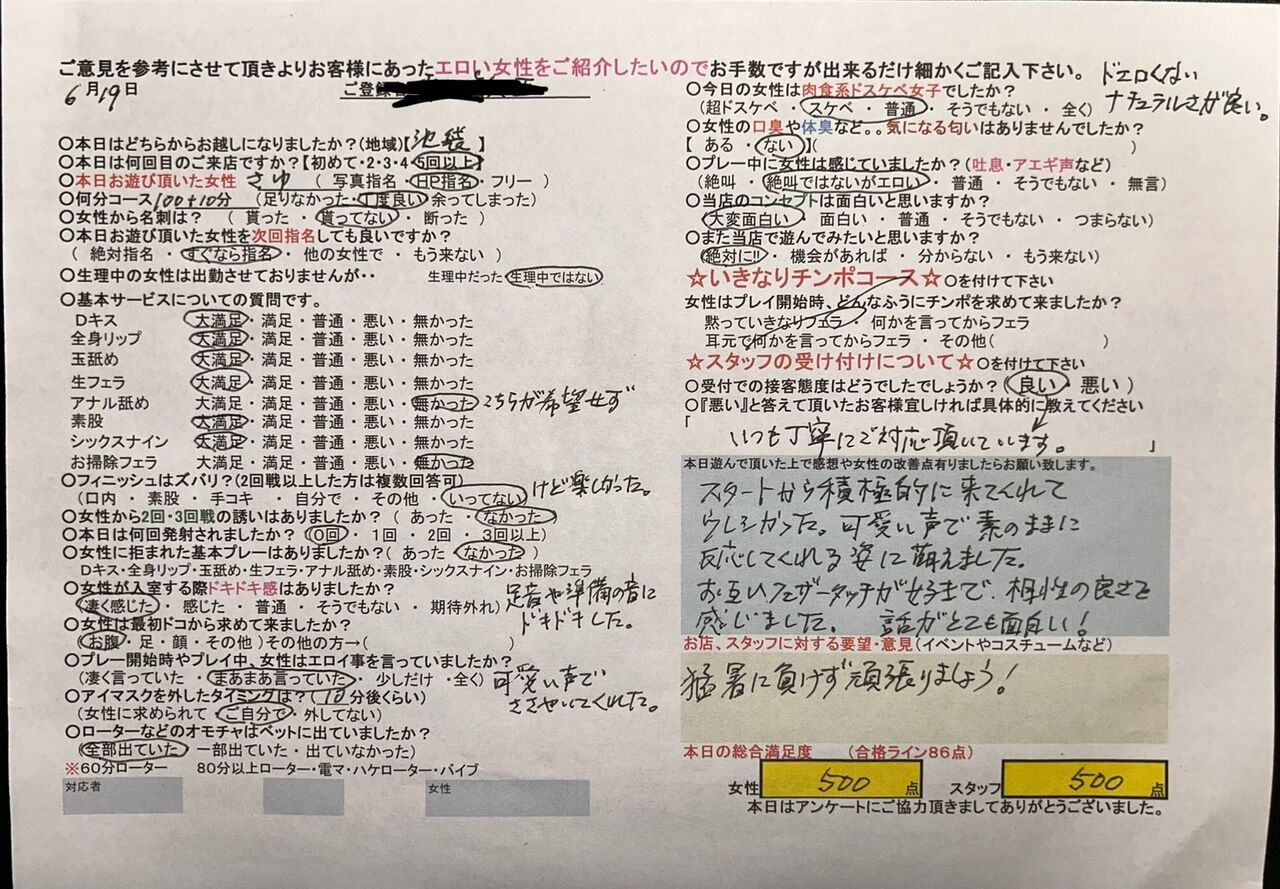 ご意見を参考にさせて頂きよりお客様にあったエロい女性をご紹介したいのでお手数ですが出来るだけ細かくご記入下さい。
6月19日
ご登録
〇本日はどちらからお越しになりましたか?(地域)【池袋】
〇本日は何回目のご来店ですか?【初めて・2・3・4・5回以上】
〇本日お遊び頂いた女性 さゆ ( 写真指名・HP指名・フリー )
〇何分コース 100+10分 (足りなかった・丁度良い・余ってしまった)
〇女性から名刺は? ( 貰った ・ 貰ってない ・ 断った )
〇本日お遊び頂いた女性を次回指名しても良いですか?
( 絶対指名 ・ すぐなら指名 ・ 他の女性で ・ もう来ない )
〇生理中の女性は出勤させておりませんが・・ 生理中だった・生理中ではない
〇基本サービスについての質問です。
Dキス 大満足・満足・普通・悪い・無かった
全身リップ 大満足・満足・普通・悪い・無かった
玉舐め 大満足・満足・普通・悪い・無かった
生フェラ 大満足・満足・普通・悪い・無かった
アナル舐め 大満足・満足・普通・悪い・無かった こちらが希望せず
素股 大満足・満足・普通・悪い・無かった
シックスナイン 大満足・満足・普通・悪い・無かった
お掃除フェラ 大満足・満足・普通・悪い・無かった
〇フィニッシュはズバリ?(2回戦以上した方は複数回答可)
(口内 ・ 素股 ・ 手コキ ・ 自分で ・ その他 ・ いってない) けど楽しかった。
〇女性から2回・3回戦の誘いはありましたか? ( あった ・ なかった )
〇本日は何回発射されましたか? (0回 ・ 1回 ・ 2回 ・ 3回以上)
〇女性に拒まれた基本プレーはありましたか? (あった なかった )
Dキス・全身リップ・玉舐め・生フェラ・アナル舐め・素股・シックスナイン・お掃除フェラ
〇女性が入室する際ドキドキ感はありましたか?
(凄く感じた ・ 感じた ・ 普通 ・ そうでもない ・ 期待外れ)
足音や準備の音に
ドキドキした。
〇女性は最初ドコから求めて来ましたか?
(お腹・足・顔・その他 )その他の方→( )
〇プレー開始時やプレイ中、女性はエロイ事を言っていましたか?
(凄く言っていた ・ まあまあ言っていた ・ 少しだけ ・全く)
可愛い声で
ささやいてくれた。
〇アイマスクを外したタイミングは? (10分後くらい)
(女性に求められて ・ ご自分で ・ 外してない)
〇ローターなどのオモチャはベットに出ていましたか?
(全部出ていた 一部出ていた・出ていなかった)
※60分ローター 80分以上ローター・電マ・ハケローター・バイブ
対応者 女性
ドエロくない
ナチュラルさが良い。
〇今日の女性は肉食系ドスケベ女子でしたか?
(超ドスケベ ・ スケベ ・ 普通 ・ そうでもない ・ 全く)
〇女性の口臭や体臭など。。気になる匂いはありませんでしたか?
【 ある ・ ない 】( )
〇プレー中に女性は感じていましたか?(吐息・アエギ声など)
(絶叫 ・ 絶叫ではないがエロい ・ 普通 ・ そうでもない ・ 無言)
〇当店のコンセプトは面白いと思いますか?
(大変面白い ・ 面白い ・ 普通 ・ そうでもない ・ つまらない)
〇また当店で遊んでみたいと思いますか?
(絶対に!! ・ 機会があれば ・ 分からない ・ もう来ない)
☆いきなりチンポコース☆〇を付けて下さい
女性はプレイ開始時、どんなふうにチンポを求めて来ましたか?
黙っていきなりフェラ ・ 何かを言ってからフェラ
耳元で何かを言ってからフェラ ・ その他( )
☆スタッフの受け付けについて☆〇を付けて下さい
〇受付での接客態度はどうでしたでしょうか? (良い 悪い )
〇『悪い』と答えて頂いたお客様宜しければ具体的に教えてください
「 いつも丁寧にご対応頂いています。 」
本日遊んで頂いた上で感想や女性の改善点有りましたらお願い致します。
スタートから積極的に来てくれて
ウレシかった。可愛い声で素のままに
反応してくれる姿に萌えました。
お互いフェザータッチが好きで、相性の良さを
感じました。 話がとても面白い!
お店、スタッフに対する要望・意見(イベントやコスチュームなど)
猛暑に負けず頑張りましょう!
本日の総合満足度 (合格ライン86点)
女性 500 点 スタッフ 500 点
本日はアンケートにご協力頂きましてありがとうございました。